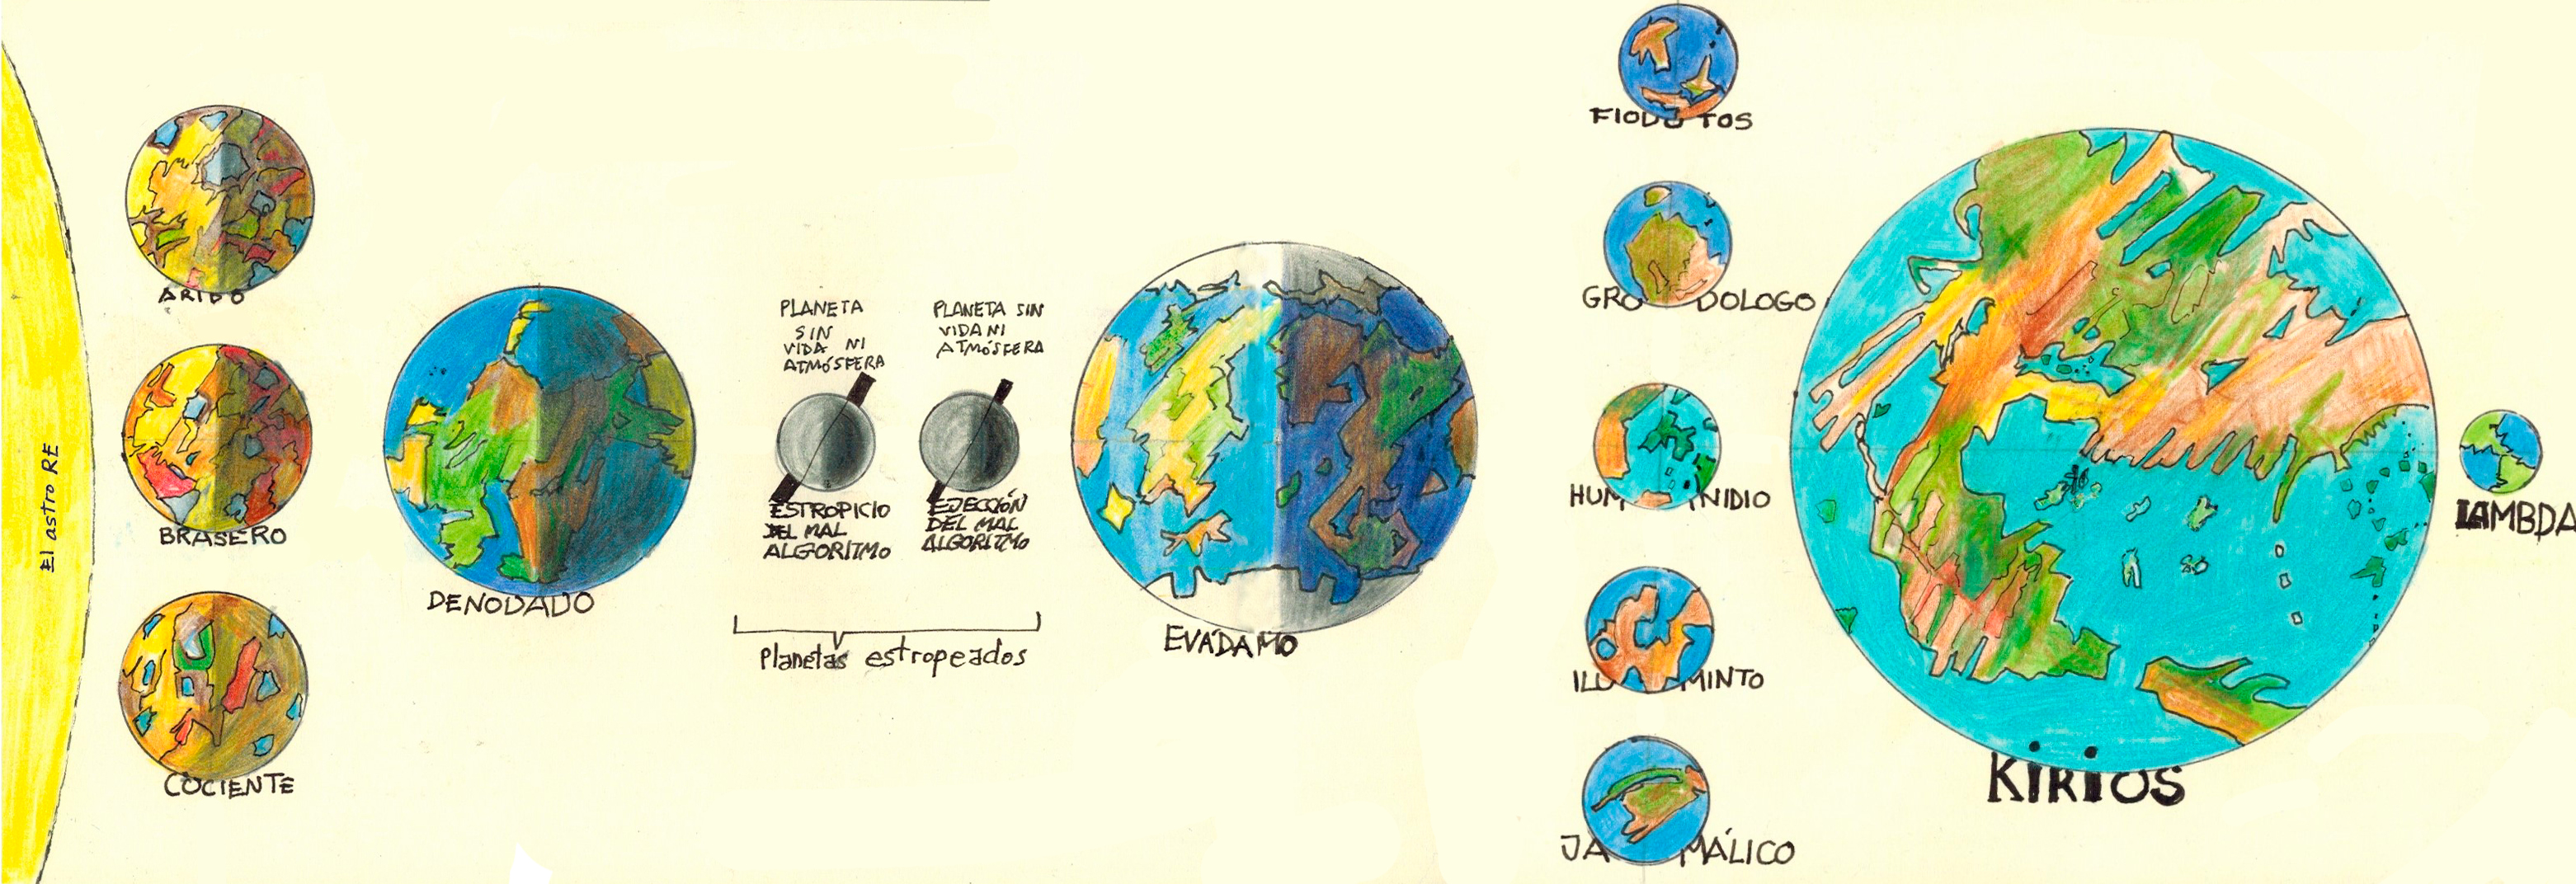 El astro RE
ARIDO
BRASERO
COCIENTE
DENODADO
PLANETA
SIN
VIDA NI
ATMÓSFERA
ESTROPICIO
DEL MAL
ALGORITMO
PLANETA SIN
VIDA NI
ATMÓSFERA
EJECCIÓN
DEL MAL
ALGORITMO
Planetas estropeados
EVÁDAMO
TOS
GRO DOLOGO
HUM NIDIO
ILU MINTO
JA MÁLICO
KIRIOS
LAMBDA